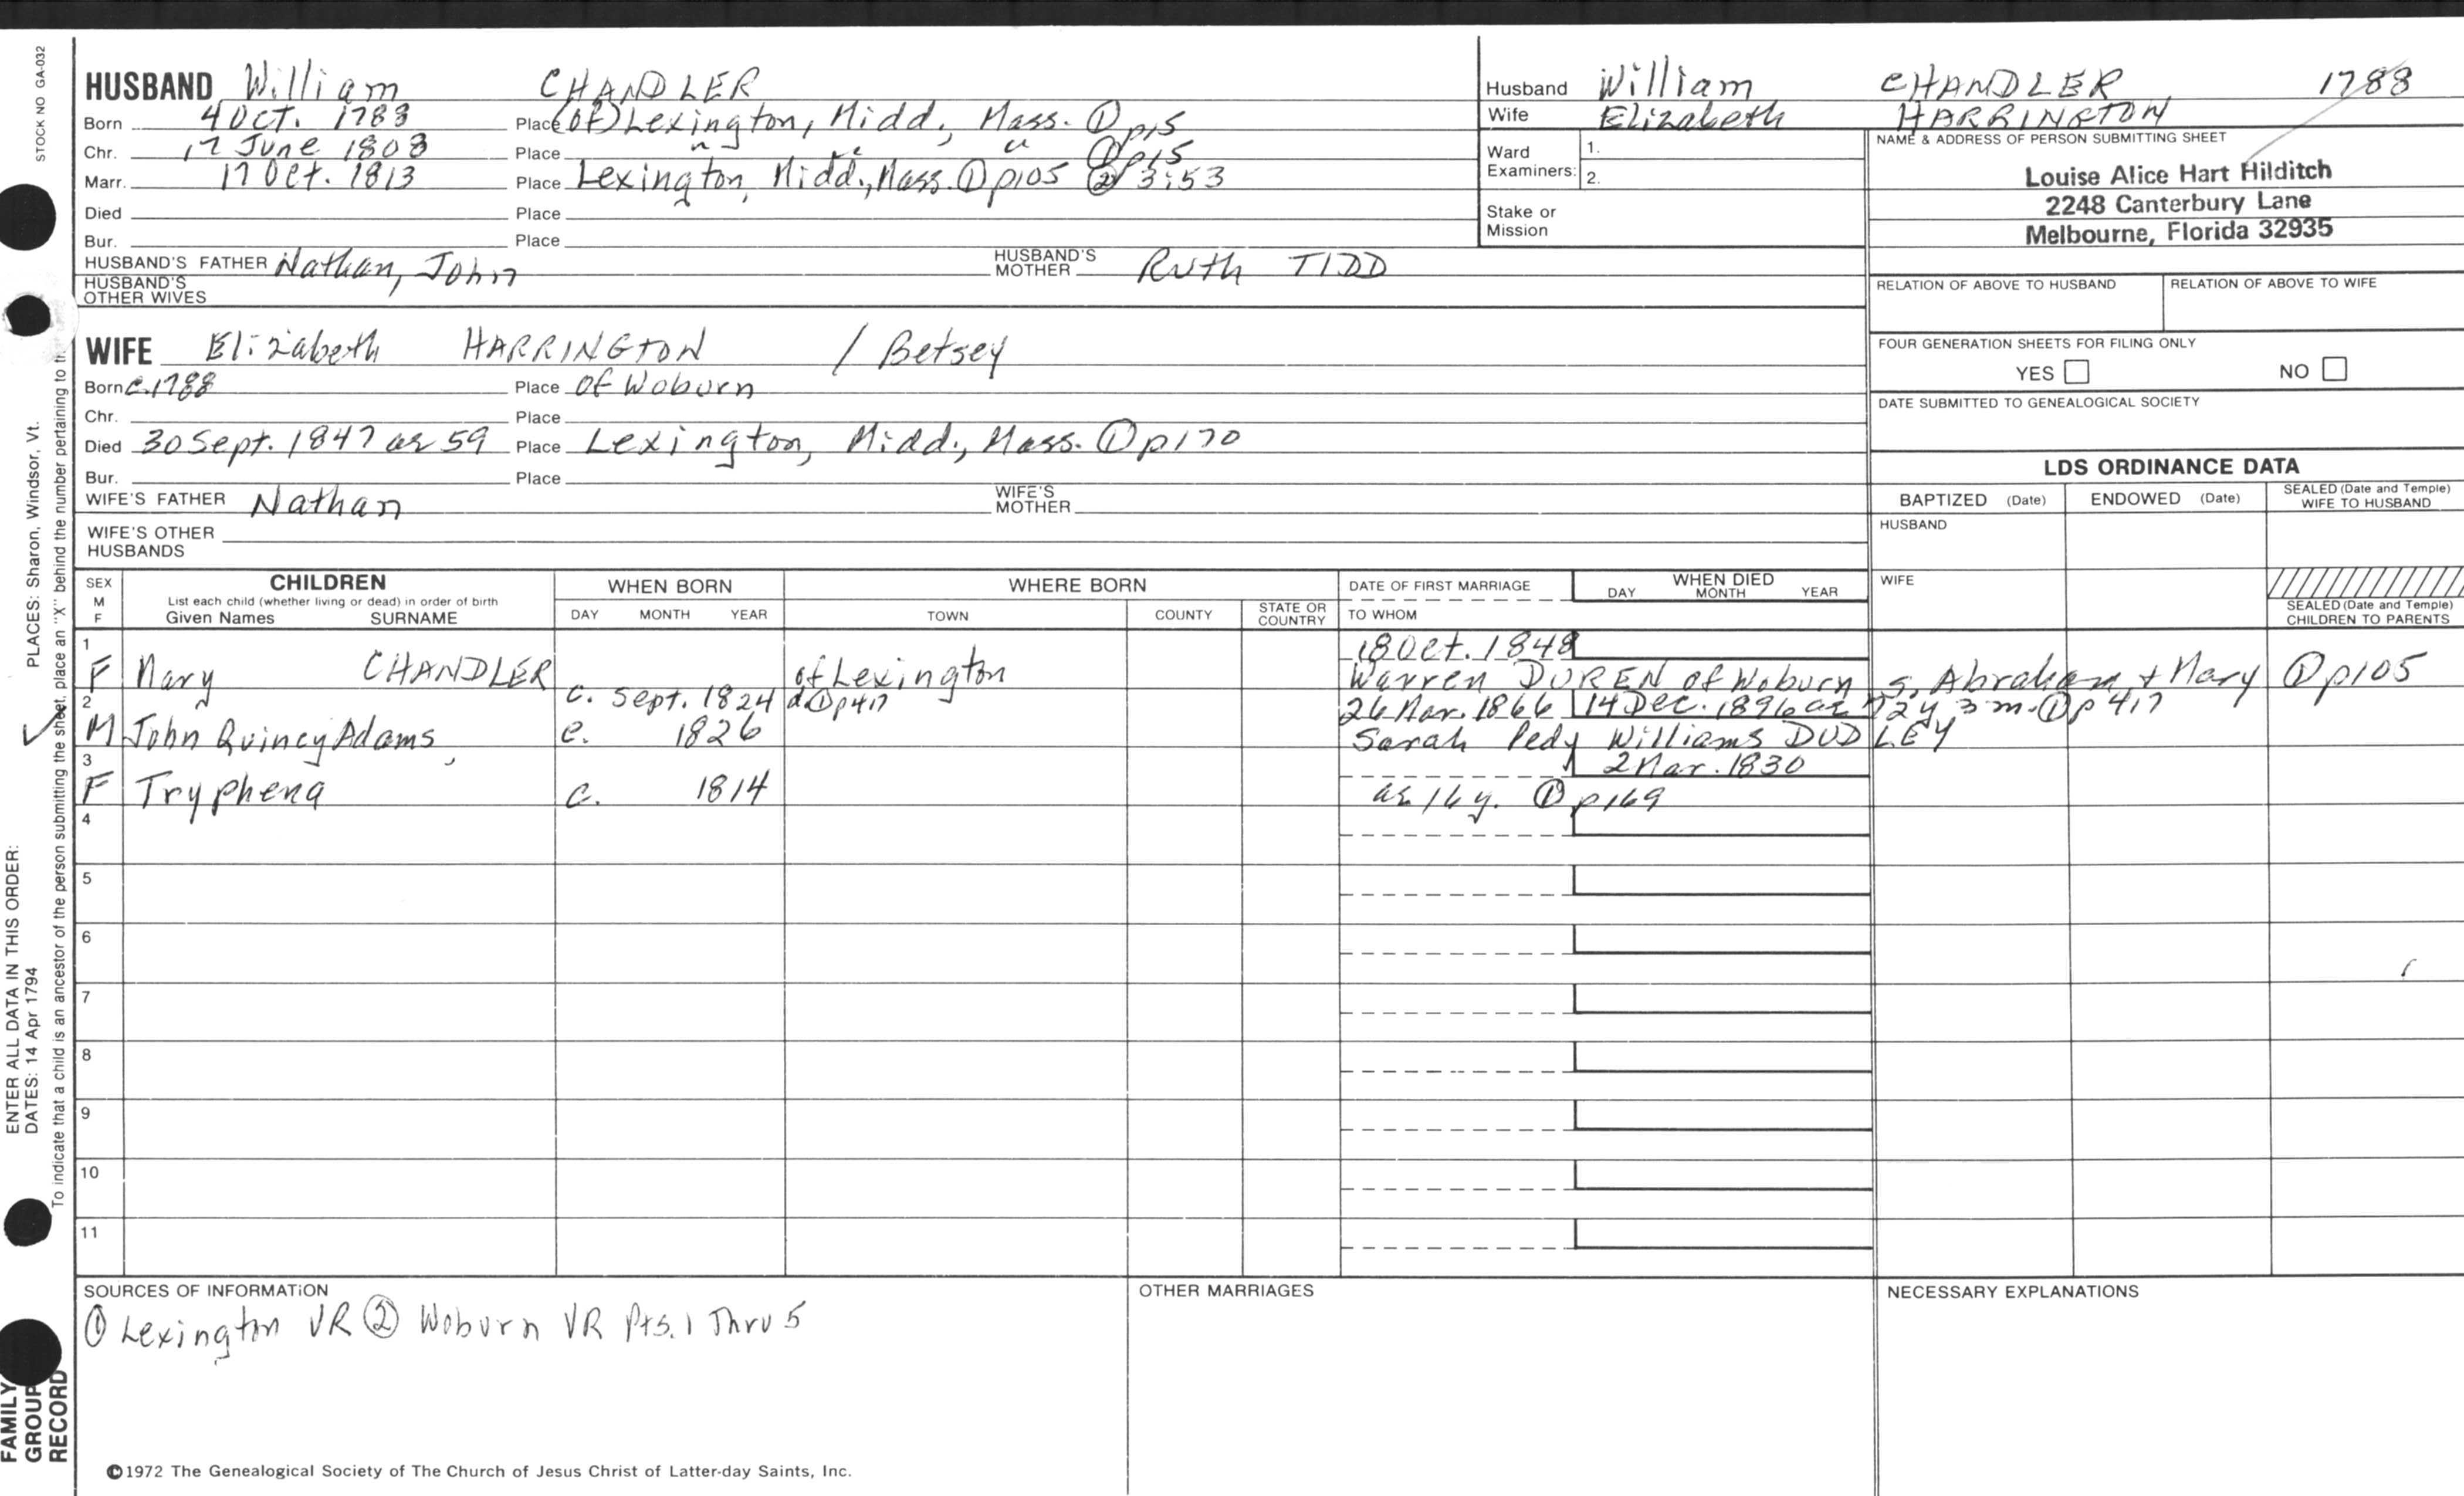 STOCK NO GA-032
HUSBAND William CHANDLER
Born 4 Oct. 1788 Place (of) Lexington, Midd., Mass. ① p15
Chr. 17 June 1808 Place " " " ① p15
Marr. 17 Oct. 1813 Place Lexington, Midd., Mass. ① p105 ② 3:53
Died Place
Bur. Place
HUSBAND'S FATHER Nathan, John HUSBAND'S MOTHER Ruth TIDD
HUSBAND'S OTHER WIVES
Husband William CHANDLER 1788
Wife Elizabeth HARRINGTON
Ward Examiners: 1.
2.
Stake or Mission
NAME & ADDRESS OF PERSON SUBMITTING SHEET
Louise Alice Hart Hilditch
2248 Canterbury Lane
Melbourne, Florida 32935
RELATION OF ABOVE TO HUSBAND RELATION OF ABOVE TO WIFE
FOUR GENERATION SHEETS FOR FILING ONLY
YES NO
DATE SUBMITTED TO GENEALOGICAL SOCIETY
WIFE Elizabeth HARRINGTON / Betsey
Born c.1788 Place of Woburn
Chr. Place
Died 30 Sept. 1847 ae 59 Place Lexington, Midd., Mass. ① p170
Bur. Place
WIFE'S FATHER Nathan WIFE'S MOTHER
WIFE'S OTHER HUSBANDS
LDS ORDINANCE DATA
BAPTIZED (Date) ENDOWED (Date) SEALED (Date and Temple) WIFE TO HUSBAND
HUSBAND
WIFE
SEALED (Date and Temple) CHILDREN TO PARENTS
SEX M F
CHILDREN
List each child (whether living or dead) in order of birth
Given Names SURNAME
WHEN BORN
DAY MONTH YEAR
WHERE BORN
TOWN COUNTY STATE OR COUNTRY
DATE OF FIRST MARRIAGE
TO WHOM
WHEN DIED
DAY MONTH YEAR
1 18 Oct. 1848
F Mary CHANDLER of Lexington Warren DUREN of Woburn s. Abraham + Mary ① p105
2 c. Sept. 1824 d ① p417 26 Mar. 1866 14 Dec. 1896 ae 72y 3m. ① p417
M John Quincy Adams, c. 1826 Sarah Williams DUDLEY
3 2 Mar. 1830
F Tryphena c. 1814 ae 16 y. ① p169
4
5
6
7
8
9
10
11
SOURCES OF INFORMATION
① Lexington VR ② Woburn VR Pts. 1 Thru 5
OTHER MARRIAGES
NECESSARY EXPLANATIONS
©1972 The Genealogical Society of The Church of Jesus Christ of Latter-day Saints, Inc.
ENTER ALL DATA IN THIS ORDER:
DATES: 14 Apr 1794 PLACES: Sharon, Windsor, Vt.
To indicate that a child is an ancestor of the person submitting the sheet, place an "X" behind the number pertaining to
FAMILY
GROUP
RECORD